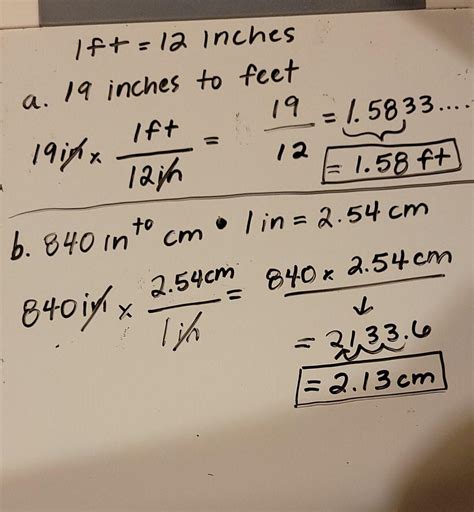 1ft = 12 inches
a. 19 inches to feet
19in x 1ft / 12in = 19 / 12 = 1.5833....
= 1.58 ft
b. 840 in to cm • 1 in = 2.54 cm
840in x 2.54cm / 1in = 840 x 2.54cm
↓
= 2133.6
= 2.13 cm